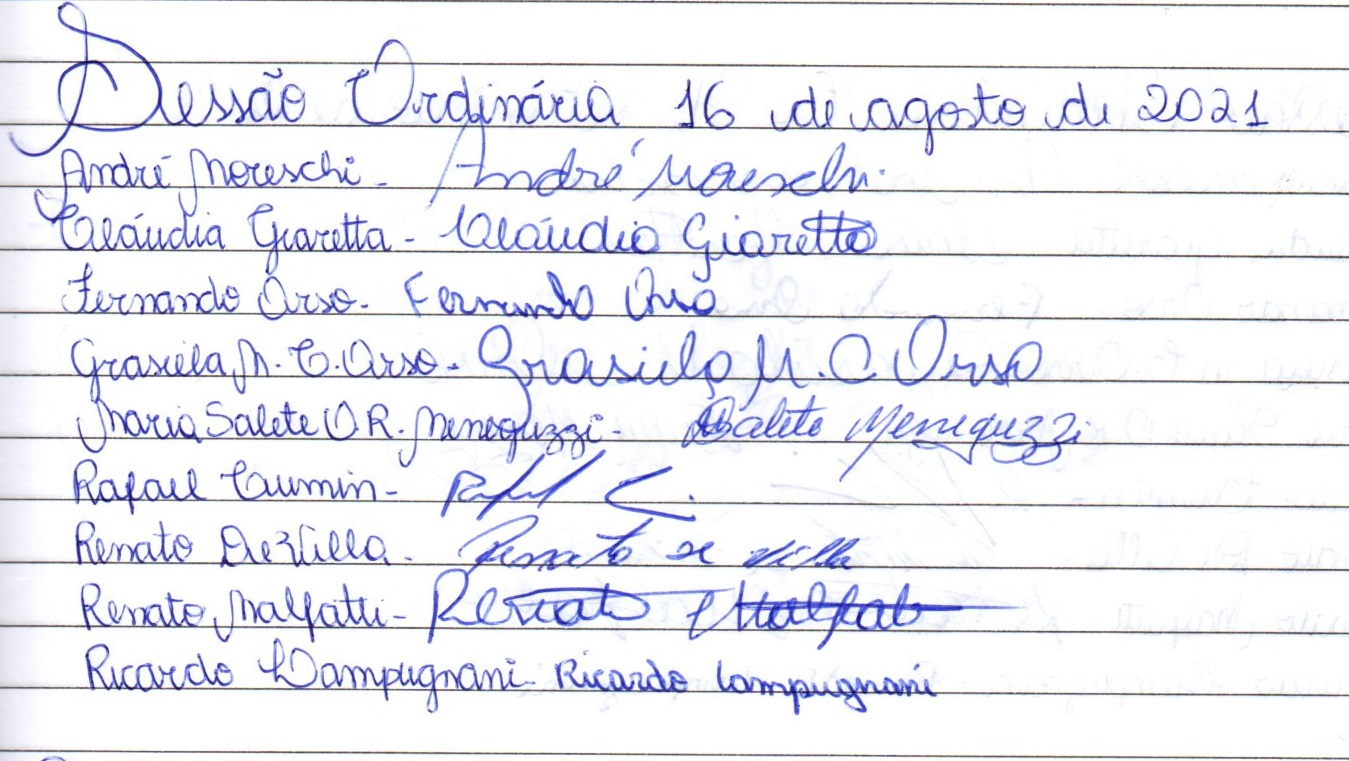 Sessão Ordinária 16 de agosto de 2021
André Moreschi - André Moreschi
Cláudia Giaretta - Cláudia Giaretta
Fernando Orso - Fernando Orso
Grasiela M. C. Orso - Grasiela M. C. Orso
Maria Salete O R. Meneguzzi - Salete Meneguzzi
Rafael Cumin - Rafael C.
Renato De Villa - Renato de villa
Renato Malfatti - Renato Malfatti
Ricardo Lampugnani - Ricardo lampugnani